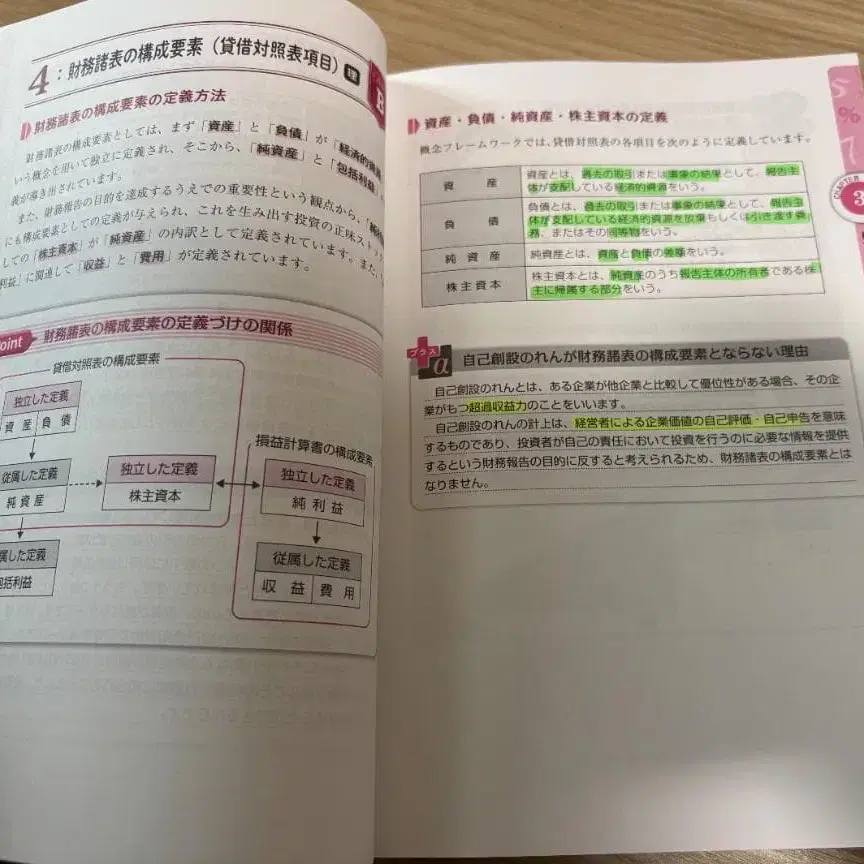 4：財務諸表の構成要素（貸借対照表項目）理
財務諸表の構成要素の定義方法
財務諸表の構成要素としては、まず「資産」と「負債」が「経済的資源」
いう概念を用いて独立に定義され、そこから、「純資産」と「包括利益
義が導き出されています。
また、財務報告の目的を達成するうえでの重要性という観点から、「純
にも構成要素としての定義が与えられ、これを生み出す投資の正味ストッ
しての「株主資本」が「純資産」の内訳として定義されています。また、
利益」に関連して「収益」と「費用」が定義されています。
oint 財務諸表の構成要素の定義づけの関係
貸借対照表の構成要素
独立した定義
資産 負債
従属した定義
純資産
独立した定義
株主資本
属した定義
包括利益
損益計算書の構成要素
独立した定義
純利益
従属した定義
収益 費用
資産・負債・純資産・株主資本の定義
概念フレームワークでは、貸借対照表の各項目を次のように定義しています。
資産
資産とは、過去の取引または事象の結果として、報告主
体が支配している経済的資源をいう。
負債
負債とは、過去の取引または事象の結果として、報告主
体が支配している経済的資源を放棄もしくは引き渡す義
務、またはその同等物をいう。
純資産
純資産とは、資産と負債の差額をいう。
株主資本
株主資本とは、純資産のうち報告主体の所有者である株
主に帰属する部分をいう。
プラスα 自己創設のれんが財務諸表の構成要素とならない理由
自己創設のれんとは、ある企業が他企業と比較して優位性がある場合、その企
業がもつ超過収益力のことをいいます。
自己創設のれんの計上は、経営者による企業価値の自己評価・自己申告を意味
するものであり、投資者が自己の責任において投資を行うのに必要な情報を提供
するという財務報告の目的に反すると考えられるため、財務諸表の構成要素とは
なりません。
CHAPTER
3